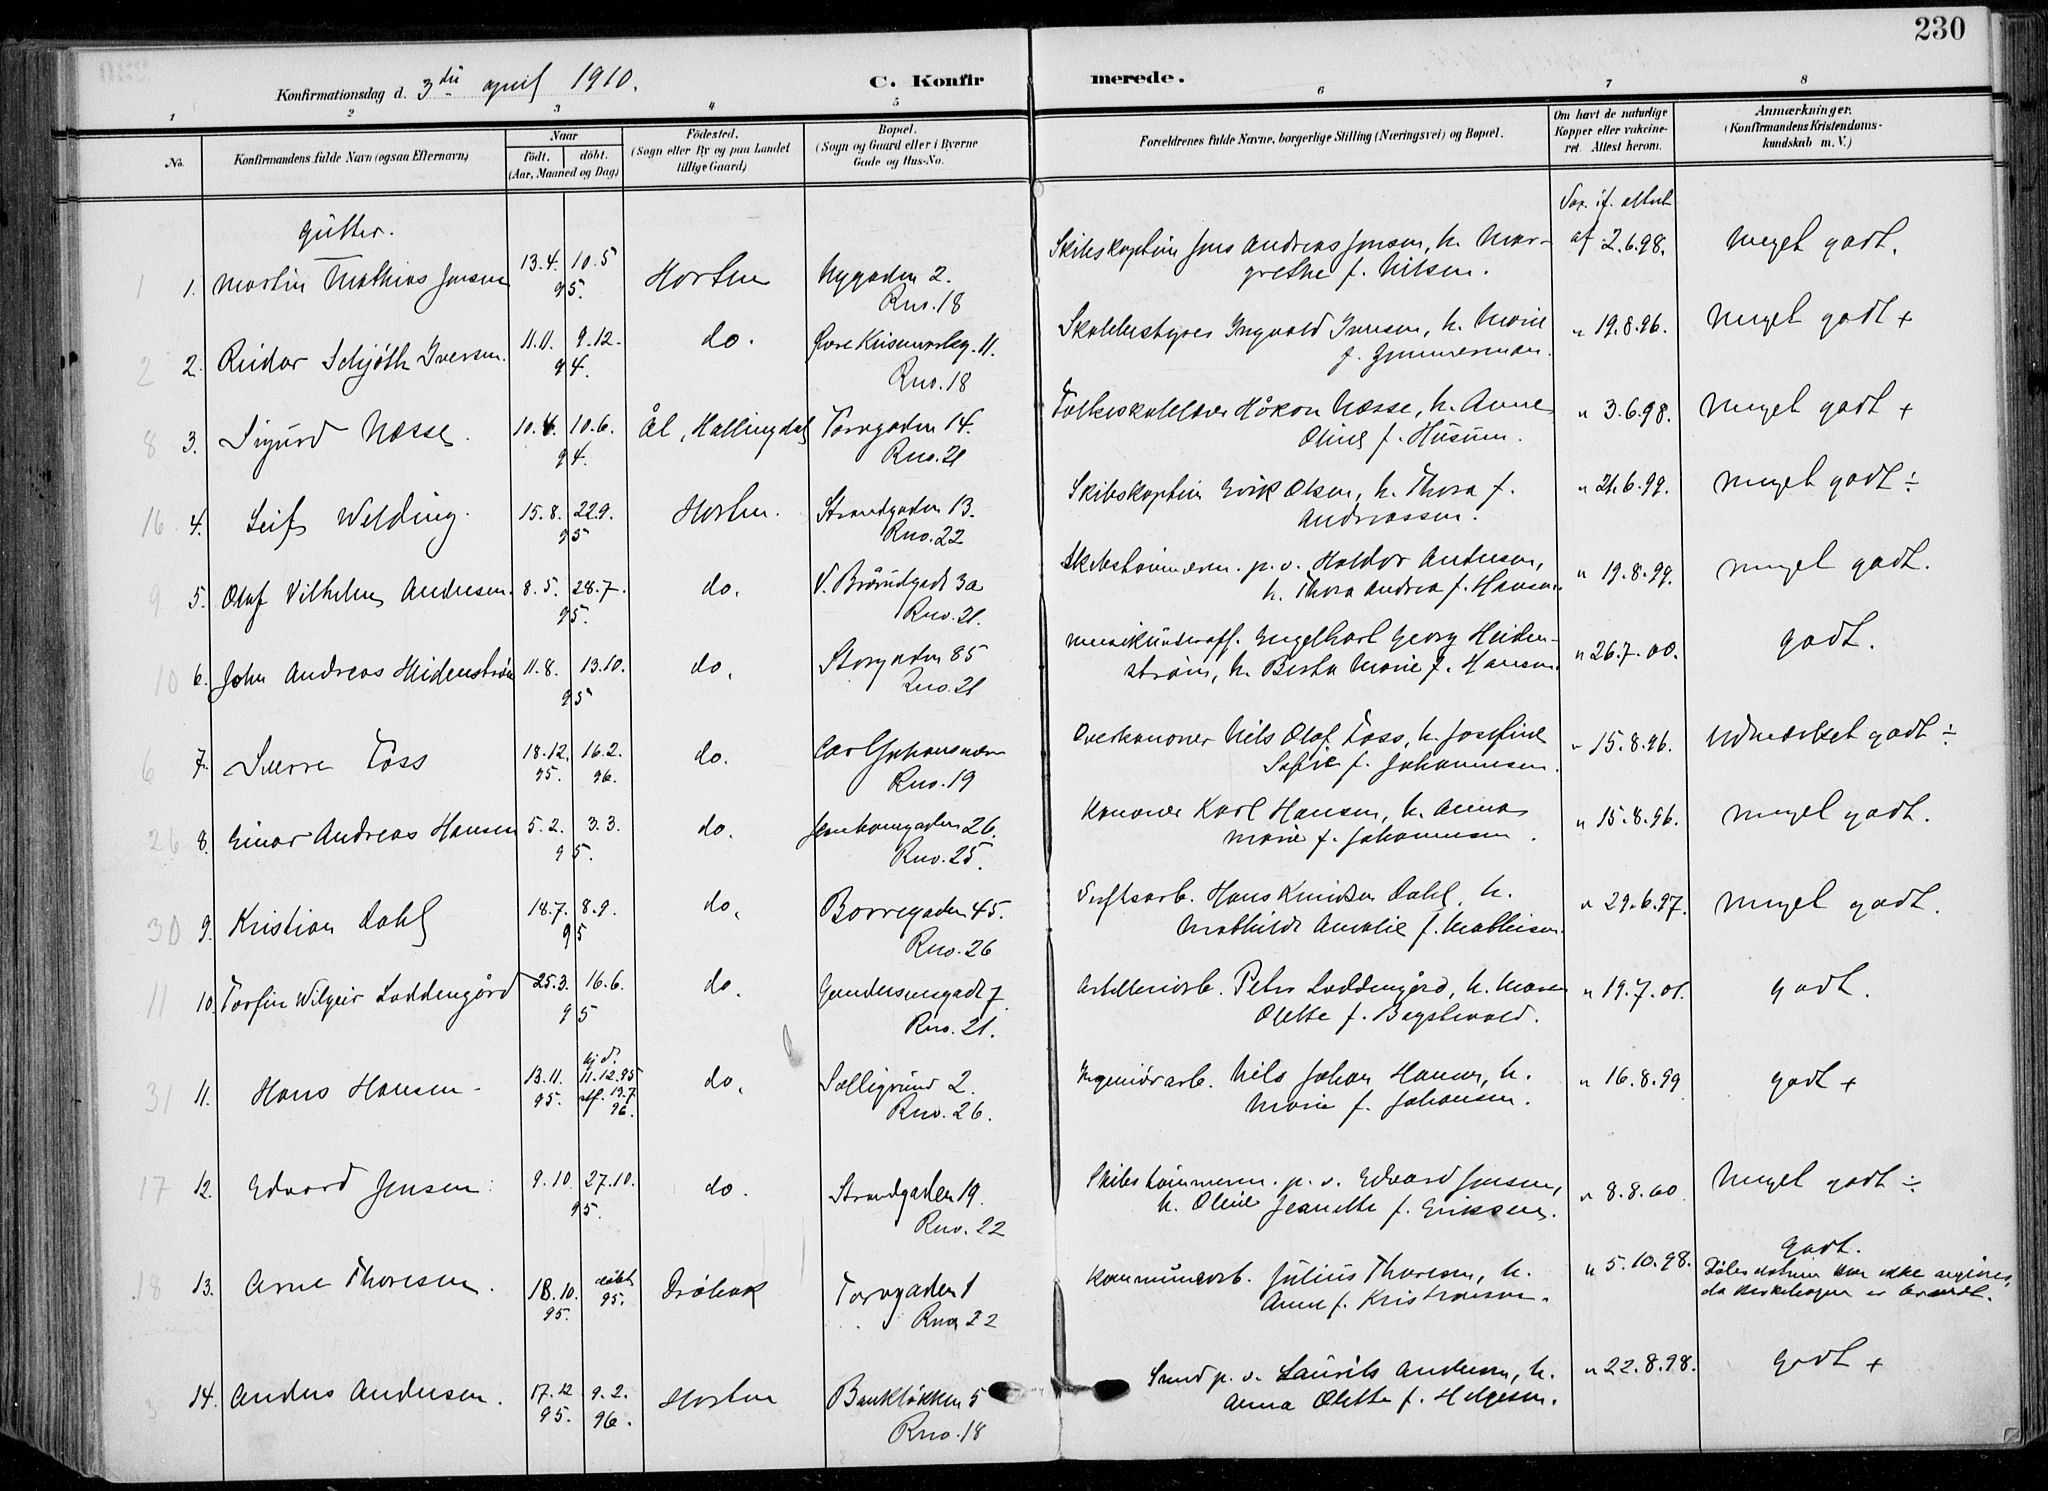 230
Konfirmationsdag d. 3die april 1910.
C. Konfirmerede.
1 2 3 4 5 6 7 8
No.
Konfirmandens fulde Navn (ogsaa Efternavn)
Naar
født. døbt.
(Aar, Maaned og Dag)
Fødested.
(Sogn eller By og paa Landet
tillige Gaard)
Bopæl.
(Sogn og Gaard eller i Byerne
Gade og Hus-No.
Forældrenes fulde Navne, borgerlige Stilling (Næringsvei) og Bopæl.
Om havt de naturlige
Kopper eller vakcine-
ret. Attest herom.
Anmærkninger.
(Konfirmandens Kristendoms-
kundskab m. V.)
Gutter.
1 1. Martin Mathias Jensen 13.4. 10.5 95. Horten Nygaden 2. Rno. 18
Skibskaptein Jens Andreas Jensen, h. Mar-
grethe f. Nilsen.
Vax. if. attest
af 2.6.98. Meget godt.
2 2. Reidar Schjøth Iversen. 11.11. 9.12. 94. do. Rno. 18
Skolebestyrer Ingvald Iversen, h. Marie
f. Zimmerman.
" 19.8.96. Meget godt +
8 3. Sigurd Næsse. 10.4. 10.6. 94. Ål, Hallingdal Torvgaden 14. Rno. 21
Folkeskolelærer Håkon Næsse, h. Anne
Oline f. Husum.
" 3.6.98. Meget godt +
16 4. Leif Welding. 15.8. 22.9. 95 Horten. Strandgaden 13. Rno. 22
Skibskaptein Erik Olsen, h. Thora f.
Andreassen.
" 21.6.99. Meget godt ÷
9 5. Olaf Vilhelm Andersen. 8.5. 28.7. 95. do. V. Brårudgade 3a Rno. 21.
Skibstømmerm. p.v. Haldor Andersen,
h. Thora Andrea f. Hansen.
" 19.8.99. Meget godt.
10 6. John Andreas Heidenstrøm 11.8. 13.10. 95 do. Storgaden 85 Rno. 21
Musikunderoff. Engelhart Georg Heiden-
strøm, h. Berta Marie f. Hansen.
" 26.7.00. godt.
6 7. Sverre Foss 18.12. 95. 16.2. 96. do. Carl Johansværn Rno. 19
Overkanoner Nils Olaf Foss, h. Josefine
Sofie f. Johannesen.
" 15.8.96. Udmærket godt ÷
26 8. Einar Andreas Hansen 5.2. 3.3. 95. do. Jernbanegaden 26. Rno. 25.
Kanoner Karl Hansen, h. Anna
Marie f. Johannesen.
" 15.8.96. Meget godt.
30 9. Kristian Dahl 18.7. 8.9. 95 do. Borregaden 45. Rno. 26
Hans Knudsen Dahl, h.
Mathilde Amalie f. Mathisen.
" 29.6.97. Meget godt.
11 10. Torfin Wilgeir Loddengård 25.3. 16.6. 95 do. Gundersensgade 7. Rno. 21.
Artilleriarb. Peter Loddengård, h. Maren
Olette f.
" 19.7.01. godt.
31 11. Hans Hansen. 13.11. 95. hj.d. 11.12.95 stf. 13.7. 96. do. Solligrund 2. Rno. 26.
Ingeniørarb. Nils Johan Hansen, h.
Marie f. Johansen.
" 16.8.99 godt +
17 12. Edvard Jensen. 9.10. 27.10. 95. do. Strandgaden 19. Rno. 22
Skibstømmerm. p.v. Edvard Jensen,
h. Oline Jeanette f. Eriksen.
" 8.8.00. Meget godt ÷
18 13. Arne Thoresen. 18.10. 95. døbt 95. Drøbak Torvgaden 1 Rno. 22
Kommunearb. Julius Thoresen, h.
Anne f. Kristiansen.
" 5.10.98. godt.
Dåbsdatum kan ikke angives,
da kirkebogen er brændt.
3 14. Anders Andersen. 17.12 95. 9.2. 96. Horten Bankløkken 5 Rno. 18
Smed p.v. Laurits Andersen, h.
Anna Olette f. Helgesen.
" 22.8.98. godt +